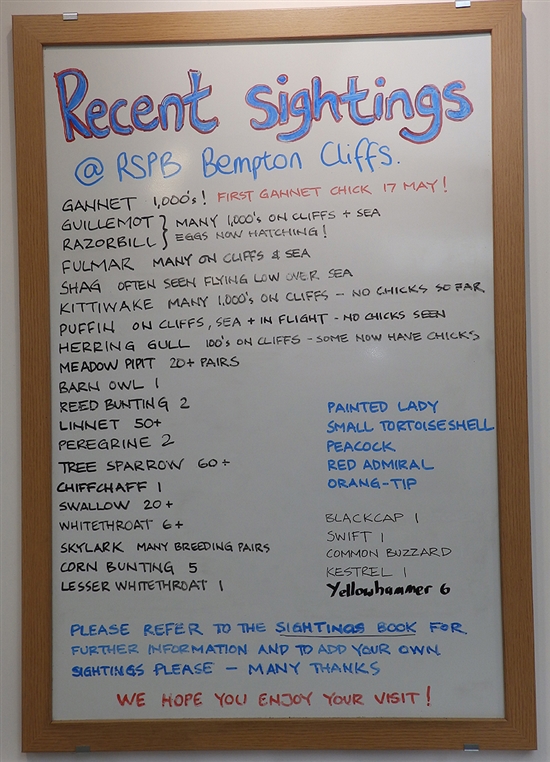 Recent Sightings
@ RSPB Bempton Cliffs.
GANNET 1,000's! FIRST GANNET CHICK 17 MAY!
GUILLEMOT } MANY 1,000's ON CLIFFS + SEA
RAZORBILL } EGGS NOW HATCHING!
FULMAR MANY ON CLIFFS & SEA
SHAG OFTEN SEEN FLYING LOW OVER SEA
KITTIWAKE MANY 1,000's ON CLIFFS - NO CHICKS SO FAR
PUFFIN ON CLIFFS, SEA + IN FLIGHT - NO CHICKS SEEN
HERRING GULL 100's ON CLIFFS - SOME NOW HAVE CHICKS
MEADOW PIPIT 20+ PAIRS
BARN OWL 1
REED BUNTING 2
LINNET 50+
PEREGRINE 2
TREE SPARROW 60+
CHIFFCHAFF 1
SWALLOW 20+
WHITETHROAT 6+
SKYLARK MANY BREEDING PAIRS
CORN BUNTING 5
LESSER WHITETHROAT 1
PAINTED LADY
SMALL TORTOISESHELL
PEACOCK
RED ADMIRAL
ORANG-TIP
BLACKCAP 1
SWIFT 1
COMMON BUZZARD
KESTREL 1
Yellowhammer 6
PLEASE REFER TO THE SIGHTINGS BOOK FOR
FURTHER INFORMATION AND TO ADD YOUR OWN
SIGHTINGS PLEASE - MANY THANKS
WE HOPE YOU ENJOY YOUR VISIT!